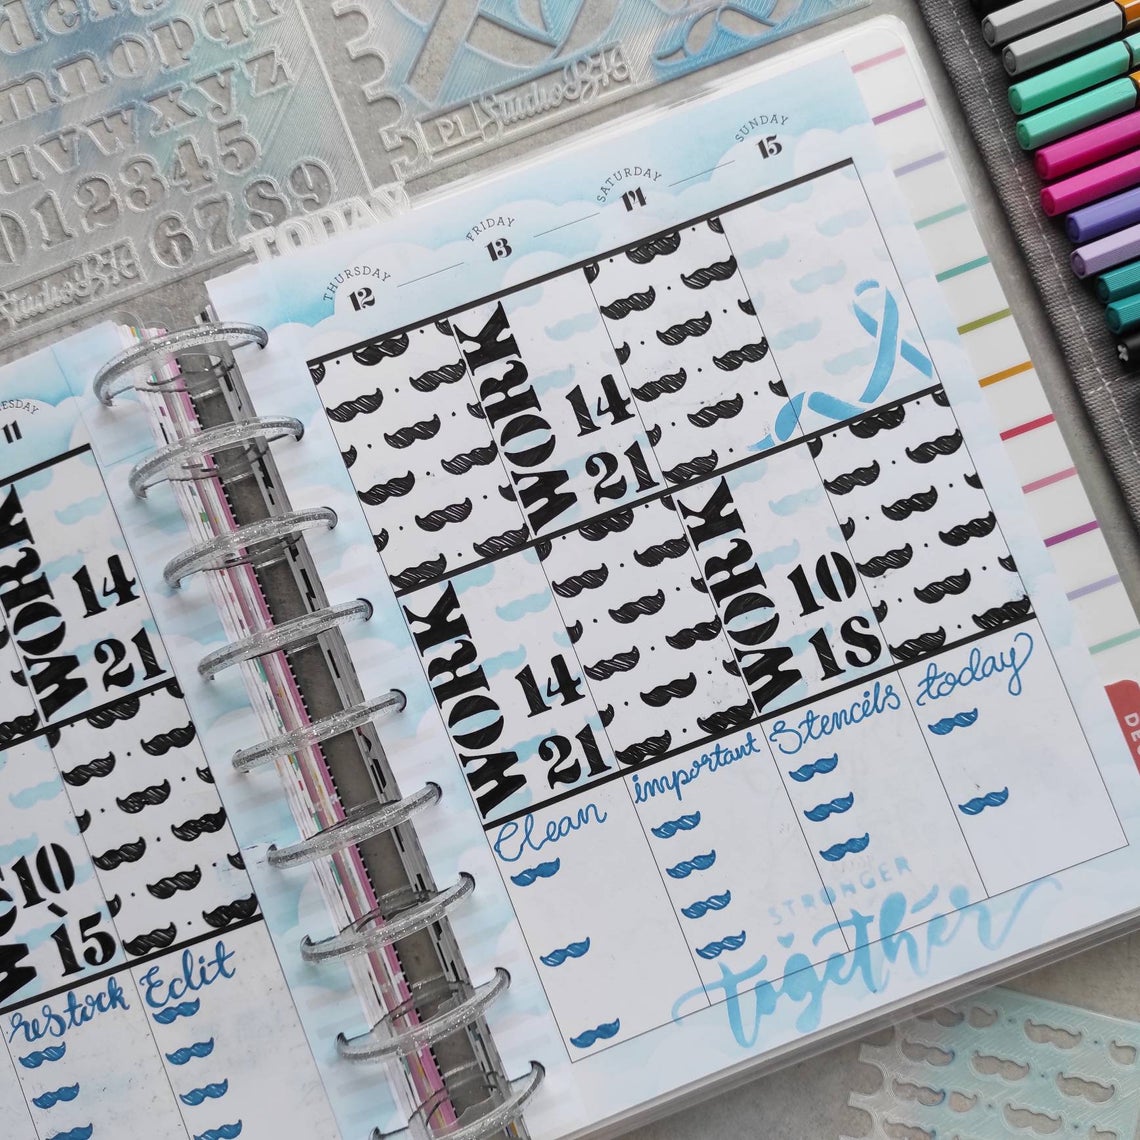 mnopqr
uvwxyz
012345
6789
Studio
Studio
TODAY
ESDAY
11
WORK
14
21
10
15
restock
Edit
THURSDAY
12
FRIDAY
13
SATURDAY
14
SUNDAY
15
WORK
14
21
WORK
14
21
WORK
10
1S
Clean
important
Stencils
today
STRONGER
together
DE